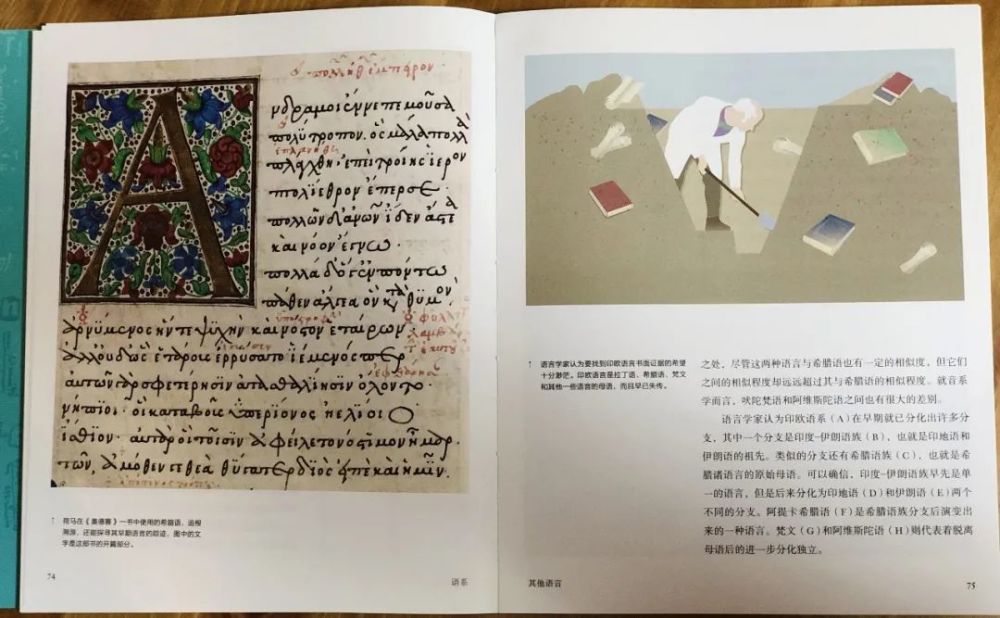 Α
νδρα μοι ἔννεπε μοῦσα
πολύτροπον· ὃς μάλα πολλὰ
πλάγχθη· ἐπεὶ τροίης ἱερὸν
πτολίεθρον ἔπερσε·
πολλῶν δ' ἀνων ἴδεν ἄστεα
καὶ νόον ἔγνω·
πολλὰ δ' ὅγ' ἐν πόντω
πάθεν ἄλγεα ὃν κατὰ θυμὸν·
ἀρνύμενος ἥν τε ψυχὴν καὶ νόστον ἑταίρων·
ἀλλ' οὐδ' ὣς ἑτάρους ἐρρύσατο ἱέμενός περ
αὐτῶν γὰρ σφετέρησιν ἀτασθαλίησιν ὄλοντο·
νήπιοι· οἳ κατὰ βοῦς ὑπερίονος ἠελίοιο
ἤσθιον· αὐτὰρ ὁ τοῖσιν ἀφείλετο νόστιμον ἦμαρ·
τῶν, ἁμόθεν γε θεὰ θύγατερ διὸς εἰπὲ καὶ ἡμῖν·
↑ 荷马在《奥德赛》一书中使用的希腊语，追根
溯源，还能探寻其早期语言的踪迹，图中的文
字是这部书的开篇部分。
74
语系
↑ 语言学家认为要找到印欧语言书面证据的希望
十分渺茫。印欧语言是拉丁语、希腊语、梵文
和其他一些语言的母语，而且早已失传。
之处，尽管这两种语言与希腊语也有一定的相似度，但它们
之间的相似程度却远远超过其与希腊语的相似程度。就音系
学而言，吠陀梵语和阿维斯陀语之间也有很大的差别。
语言学家认为印欧语系（A）在早期就已分化出许多分
支，其中一个分支是印度-伊朗语族（B），也就是印地语和
伊朗语的祖先。类似的分支还有希腊语族（C），也就是希
腊诸语言的原始母语。可以确信，印度-伊朗语族早先是单
一的语言，但是后来分化为印地语（D）和伊朗语（E）两个
不同的分支。阿提卡希腊语（F）是希腊语族分支后演变出
来的一种语言。梵文（G）和阿维斯陀语（H）则代表着脱离
母语后的进一步分化独立。
其他语言
75